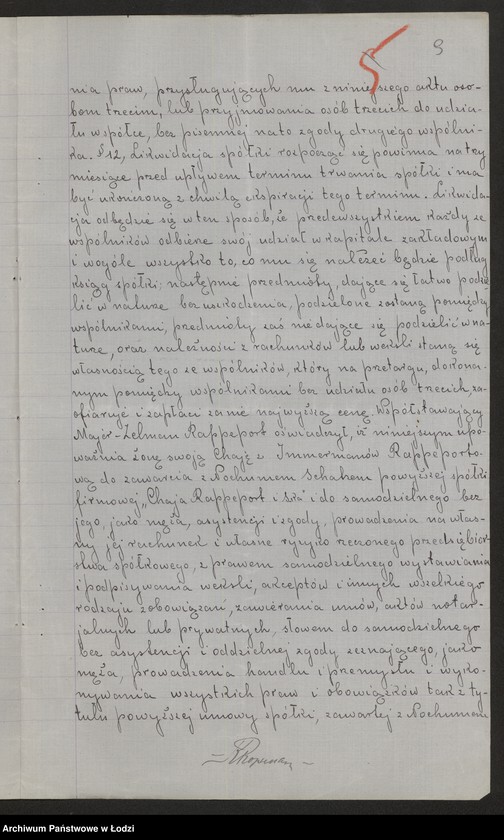 9
5
nia praw, przysługujących mu z niniejszego aktu oso-
bom trzecim, lub przyjmowania osób trzecich do udzia-
łu w spółce, bez pisemnej na to zgody drugiego wspólni-
ka. § 12, Likwidacja spółki rozpocząć się powinna na trzy
miesiące przed upływem terminu trwania spółki i ma
być ukończoną z chwilą ekspiracji tego terminu. Likwida-
cja odbędzie się w ten sposób, że przedewszystkiem każdy ze
wspólników odbierze swój udział w kapitale zakładowym
i wogóle wszystko to, co mu się należeć będzie podług
ksiąg spółki; następnie przedmioty, dające się łatwo podzie-
lić w naturze bez uszkodzenia, podzielone zostaną pomiędzy
wspólnikami, przedmioty zaś nie dające się podzielić w na-
turze, oraz należności z rachunków lub weksli staną się
własnością tego ze wspólników, który na przetargu, dokona-
nym pomiędzy wspólnikami bez udziału osób trzecich, za-
ofiaruje i zapłaci za nie najwyższą cenę. Współstawający
Majer-Zelman Rappeport oświadczył, iż niniejszym upo-
ważnia żonę swoją Chaję z Immermanów Rappeporto-
wą do zawarcia z Nochumem Schakem powyższej spółki
firmowej „Chaja Rappeport i S-ka" i do samodzielnego bez
jego, jako męża, asystencji i zgody, prowadzenia na włas-
ny jej rachunek i własne ryzyko rzeczonego przedsiębior-
stwa spółkowego, z prawem samodzielnego wystawiania
i podpisywania weksli, akceptów i innych wszelkiego
rodzaju zobowiązań, zawierania umów, aktów notar-
jalnych lub prywatnych, słowem do samodzielnego
bez asystencji i oddzielnej zgody zeznającego, jako
męża, prowadzenia handlu i przemysłu i wyko-
nywania wszystkich praw i obowiązków tak z ty-
tułu powyższej umowy spółki, zawartej z Nochumem
Archiwum Państwowe w Łodzi